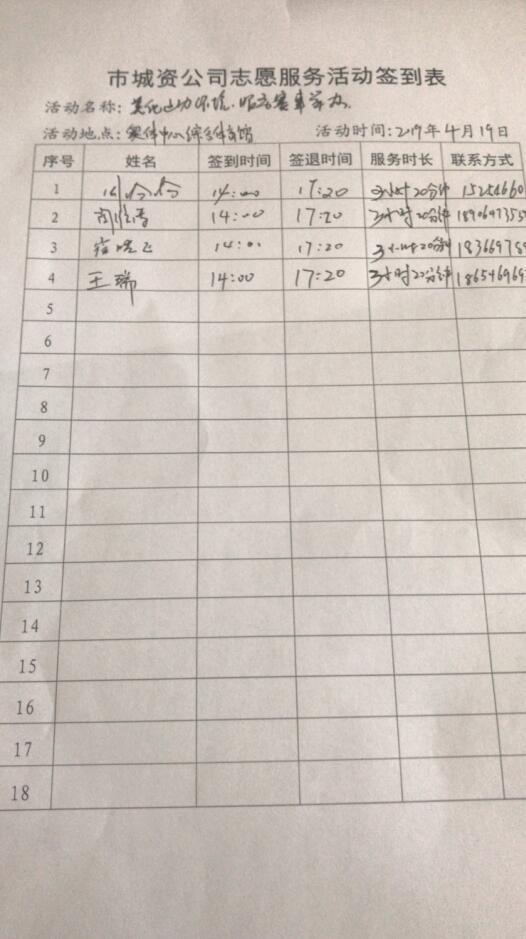 市城资公司志愿服务活动签到表
活动名称：美化运动环境，服务赛事举办
活动地点：综合体育馆 活动时间：2019年4月19日
序号 姓名 签到时间 签退时间 服务时长 联系方式
1 14:00 17:20 3小时20分钟
2 14:00 17:20 3小时20分钟
3 14:01 17:20 3小时20分钟
4 王瑞 14:00 17:20 3小时20分钟
5
6
7
8
9
10
11
12
13
14
15
16
17
18